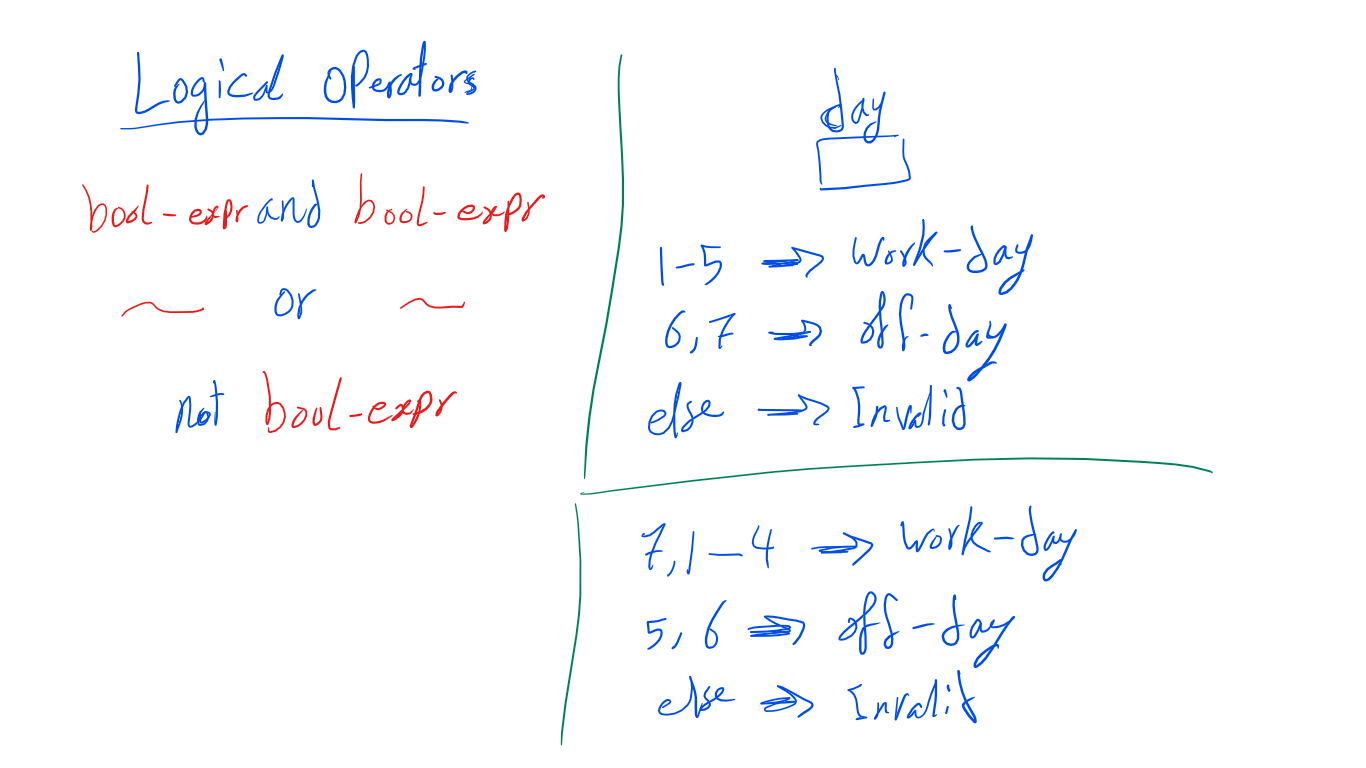 Logical Operators
bool-expr and bool-expr
or
not bool-expr
day
1-5 => Work-day
6,7 => off-day
else => Invalid
7,1-4 => work-day
5,6 => off-day
else => Invalid